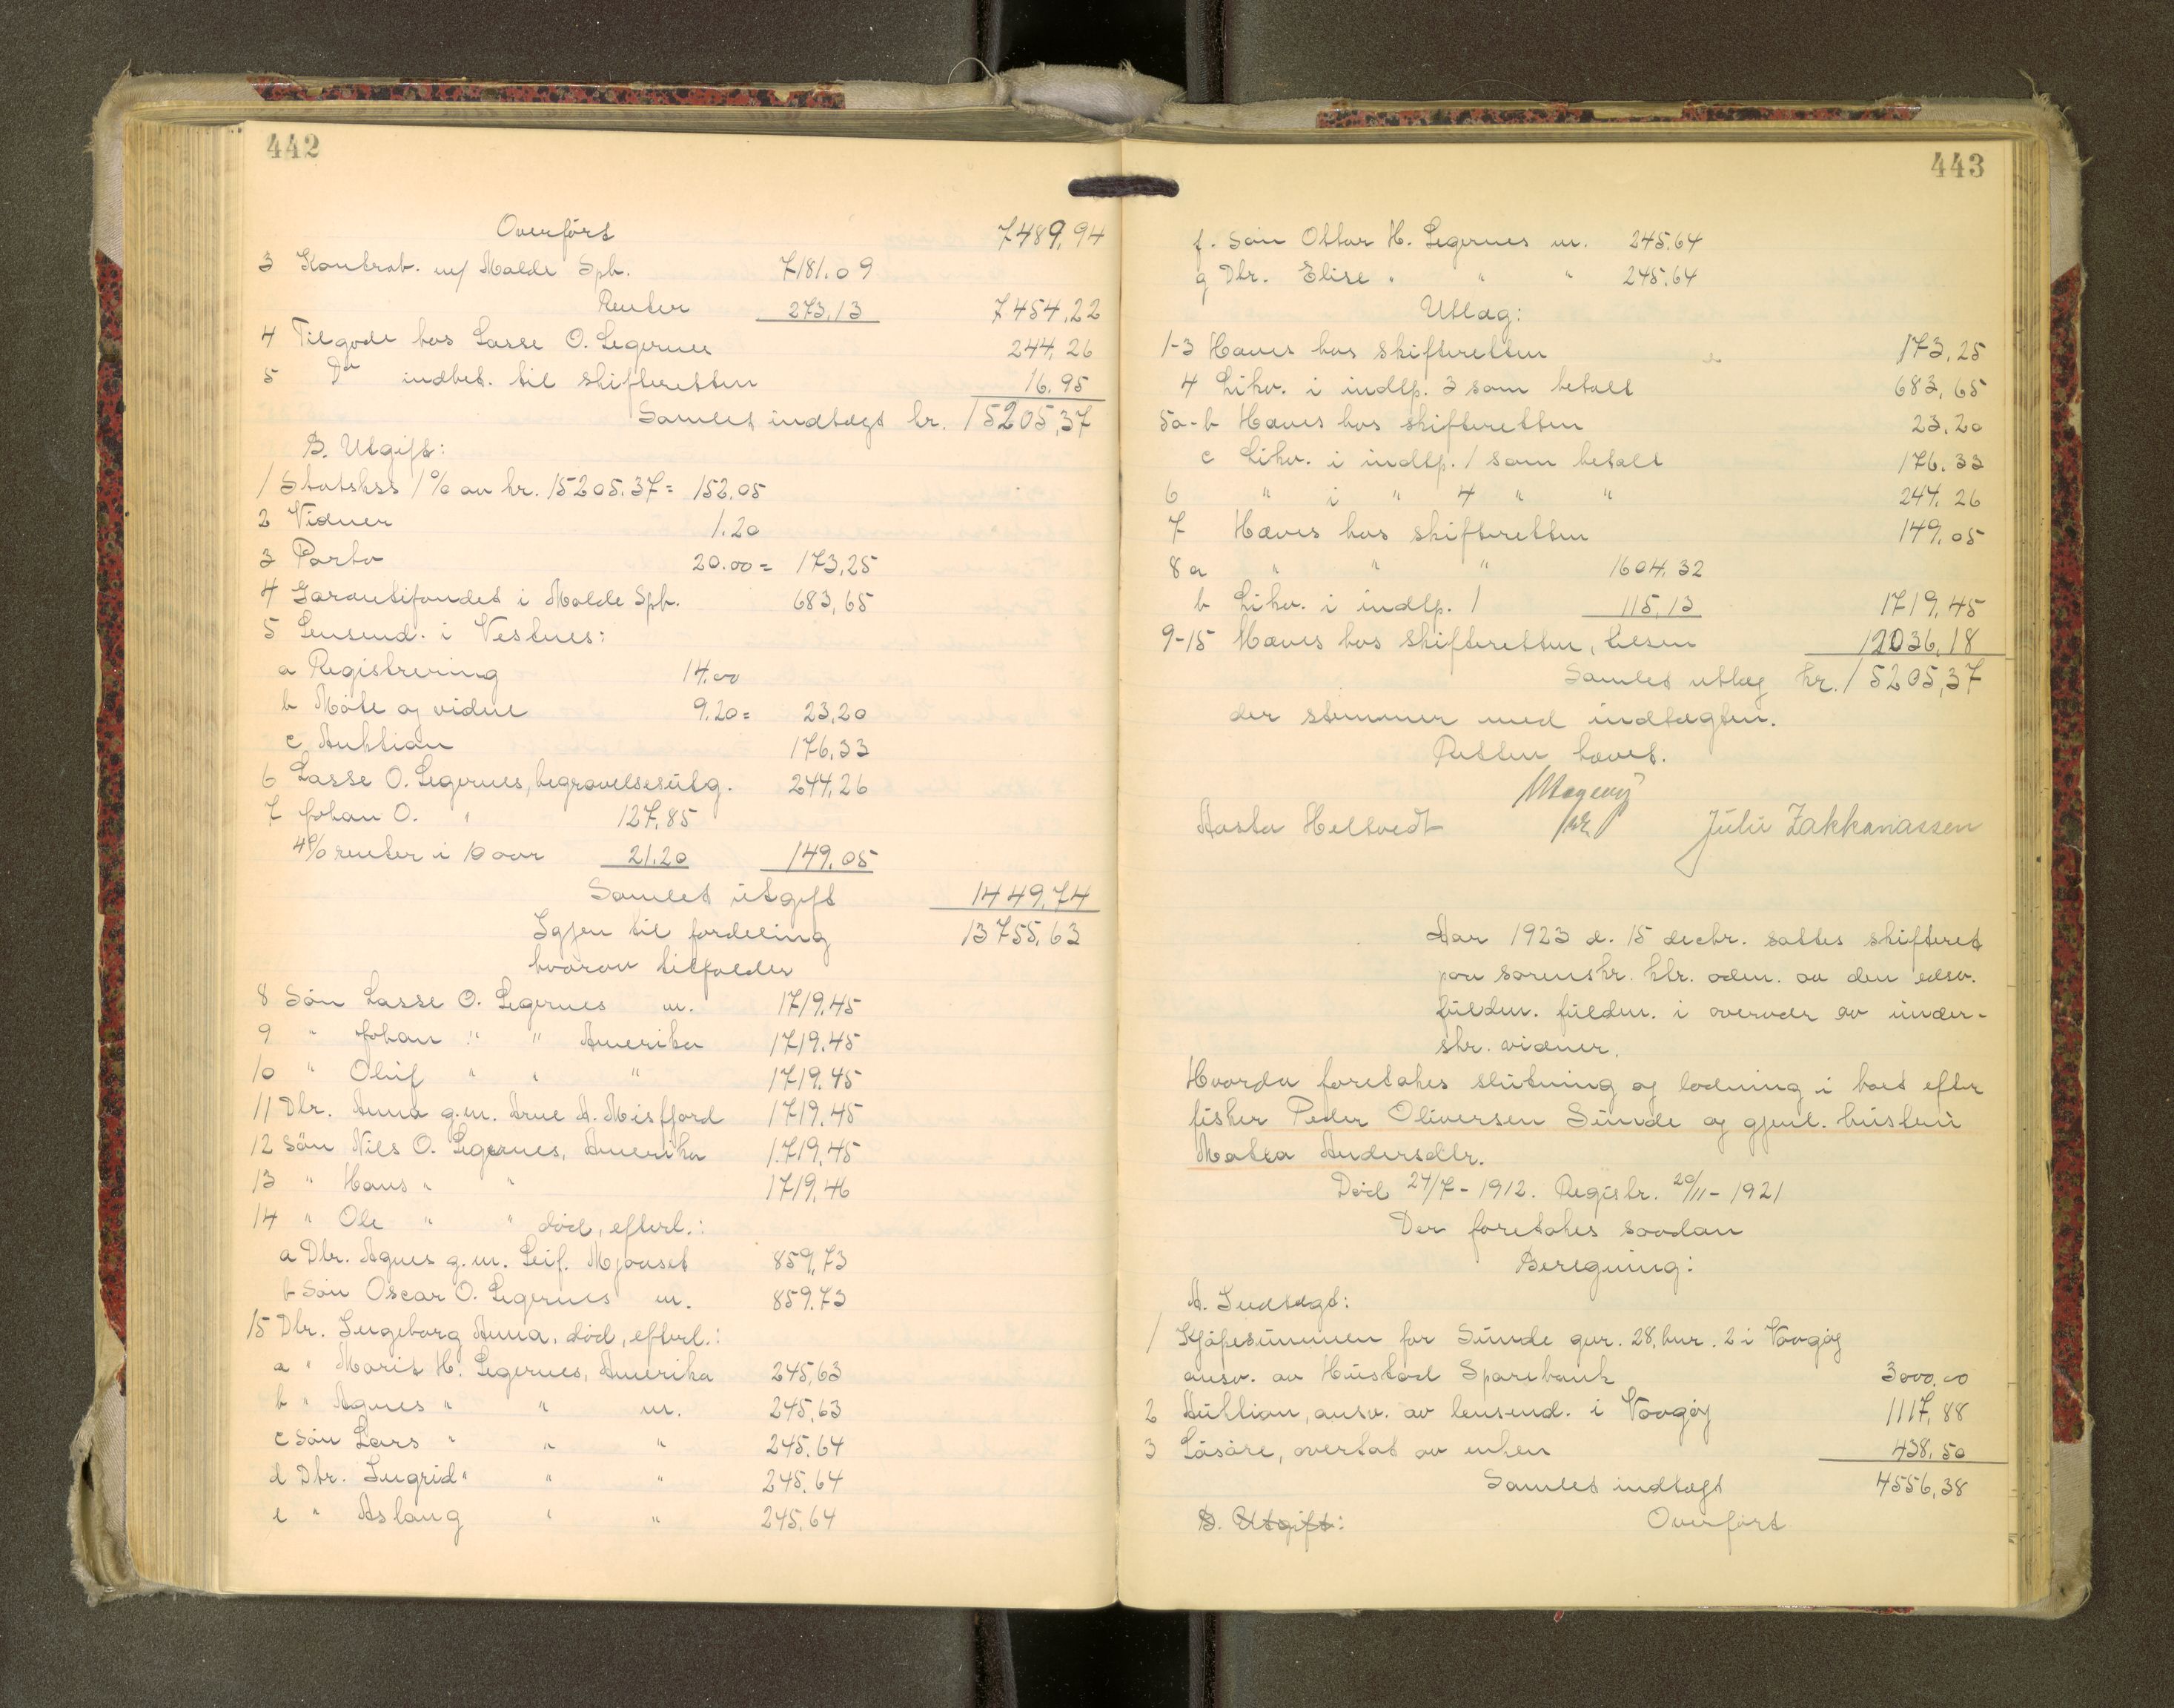 442
Overført 7489,94
3 Kontrab. m/ Molde Spb. 7181.09
Renter 273,13 7454,22
4 Tilgode hos Lasse O. Legernes 244,26
5 Do indbet. til skifteretten 16.95
Samlet indtægt kr. 15205,37
B. Utgift:
1 Statskss 1% av kr. 15205.37 = 152.05
2 Vidner 1.20
3 Porto 20.00 = 173,25
4 Garantifondet i Molde Spb. 683,65
5 Lensmd. i Vestnes:
a Registrering 14.00
b Møte og vidne 9.20 = 23,20
c Auktion 176,33
6 Lasse O. Legernes, begravelsesutg. 244,26
7 Johan O. " 127,85
4% renter i 10 aar 21.20 149.05
Samlet utgift 1449,74
Igjen til fordeling 13755,63
hvorav tilfalder
8 Søn Lasse O. Legernes m. 1719.45
9 " Johan " " Amerika 1719.45
10 " Oluf " " " 1719.45
11 Dtr. Anna g.m. Arne A. Misfjord 1719.45
12 Søn Nils O. Legernes, Amerika 1719,45
13 " Hans " " 1719,46
14 " Ole " " død, efterl.:
a Dtr. Agnes g.m. Leif. Mjouset 859,73
b Søn Oscar O. Legernes m. 859.73
15 Dtr. Ingeborg Anna, død, efterl.:
a " Marit H. Legernes, Amerika 245,63
b " Agnes " " m. 245,63
c Søn Lars " " " 245.64
d Dtr. Ingrid " " " 245.64
e " Aslaug " " 245.64
443
f. Søn Ottar H. Legernes m. 245.64
g Dtr. Elise " " " 245,64
Utlæg:
1-3 Hæves hos skifteretten 173,25
4 Likv. i indtp. 3 som betalt 683,65
5a-b Hæves hos skifteretten 23.20
c Likv. i indtp. 1 som betalt 176.33
6 " i " 4 " " 244,26
7 Hæves hos skifteretten 149.05
8 a " " " 1604,32
b Likv. i indtp. 1 115,13 1719,45
9-15 Hæves hos skifteretten, tilsm 12036,18
Samlet utlæg kr. 15205,37
der stemmer med indtægten.
Retten hævet.
Aasta Helltvedt Juliu Zakkariassen
Aar 1923 d. 15 decbr. sattes skifteret
paa sorenskr. ktr. adm. av den edsv.
fuldm. fuldm. i overvær av under-
skr. vidner.
Hvorda foretakes slutning og lodning i boet efter
fisker Peder Oliversen Sunde og gjenl. hustru
Matea Andersdtr.
Død 24/7 - 1912. Registr. 20/11 - 1921
Der foretakes saadan
Beregning:
A. Indtægt:
1 Kjøpesummen for Sunde gnr. 28, bnr. 2 i Vaagøy
ansv. av Hustad Sparebank 3000.00
2 Auktion, ansv. av lensmd. i Vaagøy 1117,88
3 Løsøre, overtat av enken 438,50
Samlet indtægt 4556,38
B. Utgift: Overført